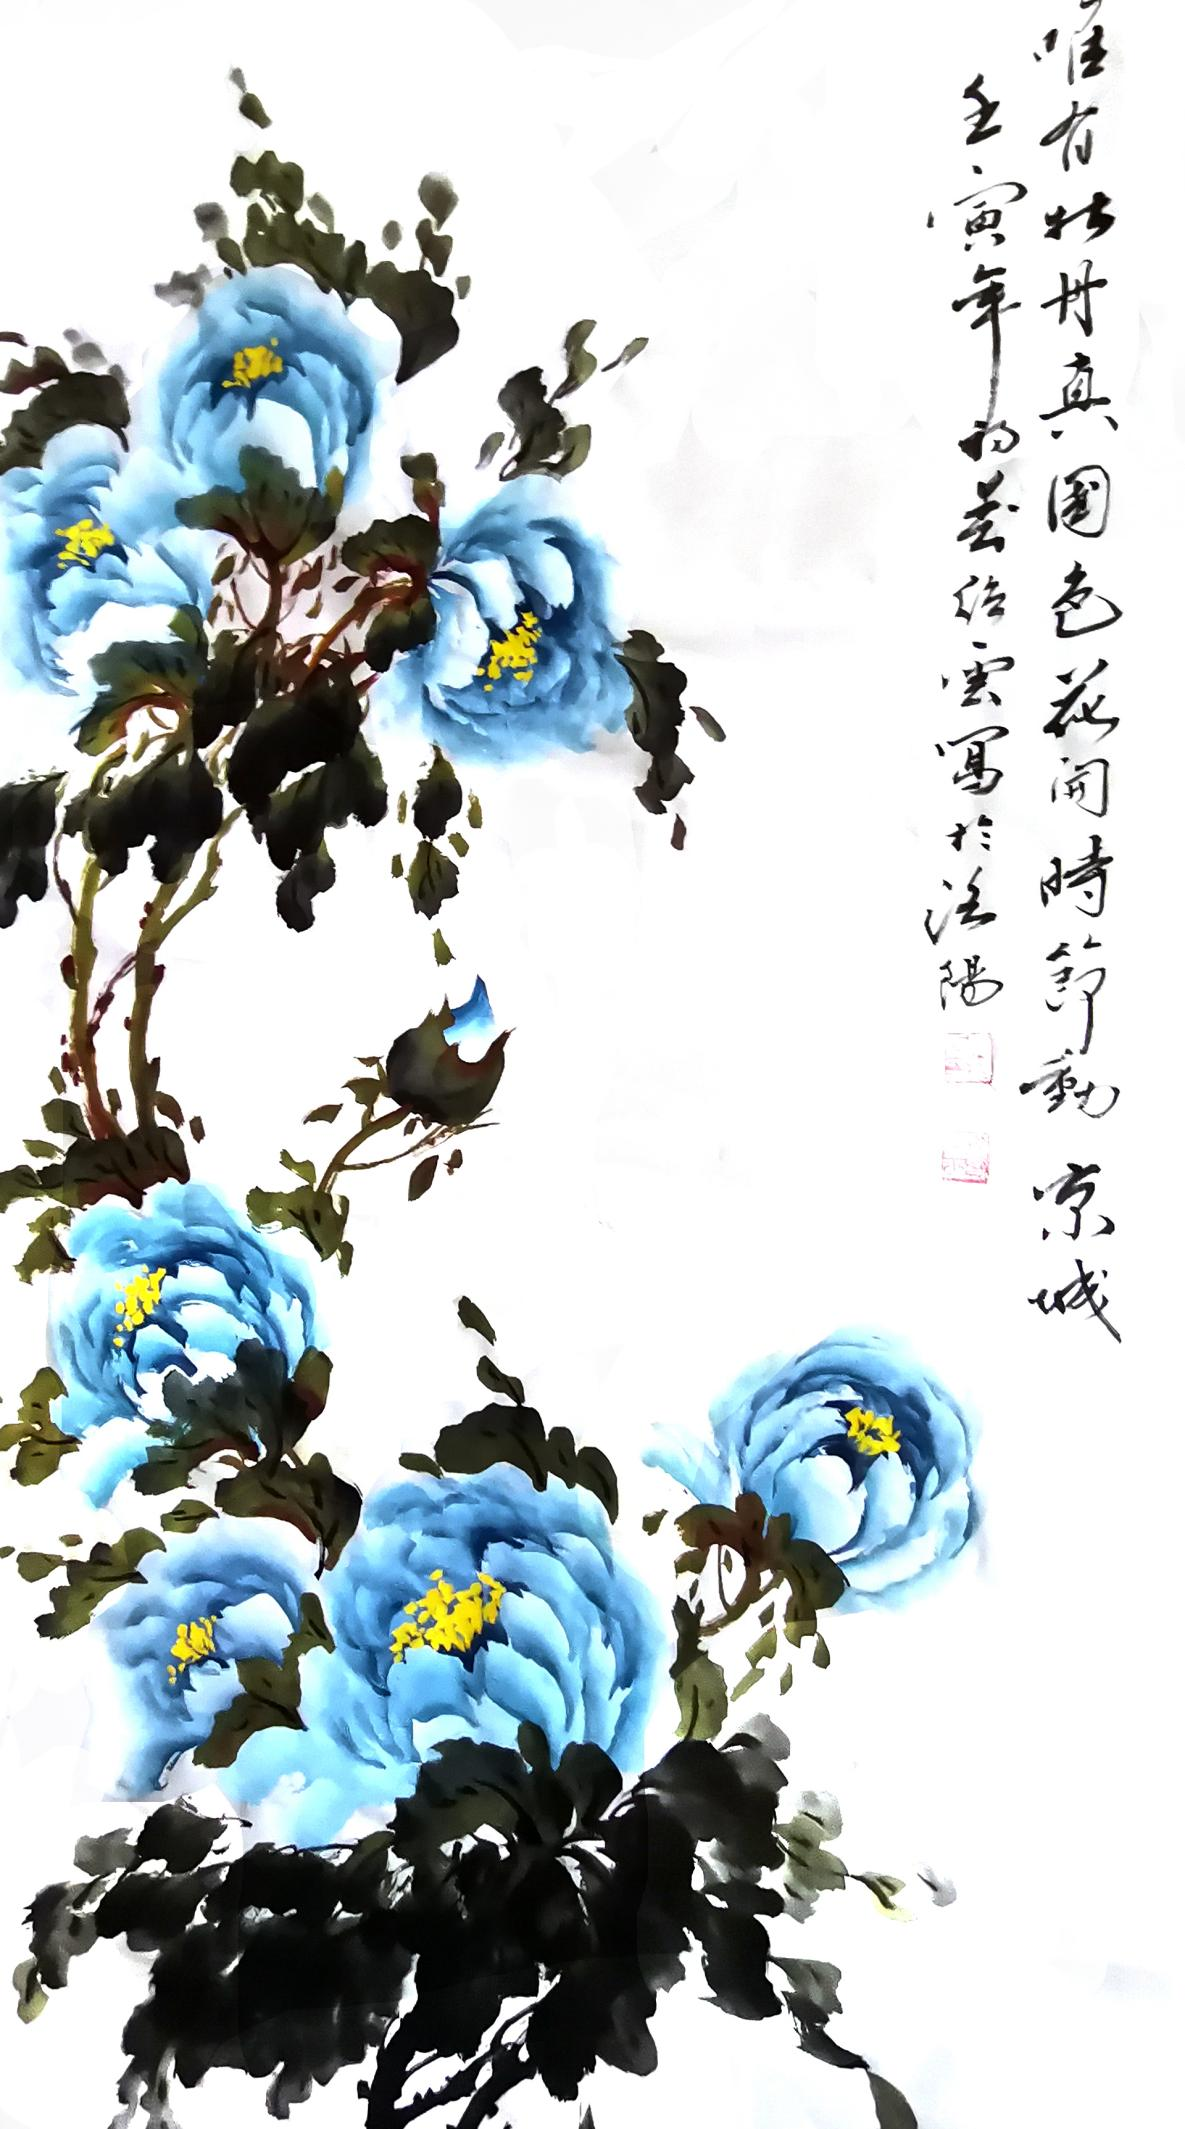 唯有牡丹真國色花開時節動京城
壬寅年初 雲寫於洛陽